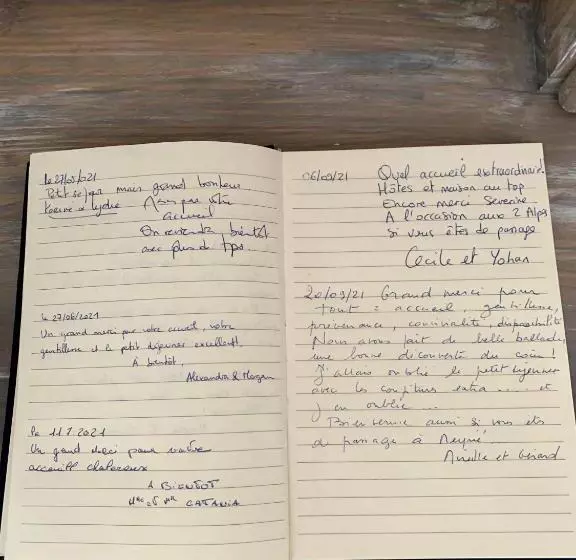 le 27/05/2021
Petit séjour mais grand bonheur
Karine & Lydie Merci pour votre
accueil
On reviendra bientôt
avec plus de tps.
le 27/06/2021
Un grand merci pour votre accueil, votre
gentillesse et le petit déjeuner excellent!
A bientôt,
Alexandra & Morgan
Le 11.7.2021
Un grand merci pour votre
accueill chaleureux
A BIENTOT
Mme et Mr CATANIA
06/09/21 Quel accueil extraordinaire!
Hôtes et maison au top
Encore merci Severine
A l'occasion aux 2 Alpes
si vous êtes de passage
Cécile et Yohan
20/09/21 Grand merci pour
tout : accueil, gentillesse,
prévenance, convivialité, disponibilité
Nous avons fait de belles ballades,
une bonne découverte du coin!
J'allais oublié le petit déjeuner
avec les confitures extra..... et
j'en oublie...
Bienvenue aussi si vous êtes
de passage à
et Gérard